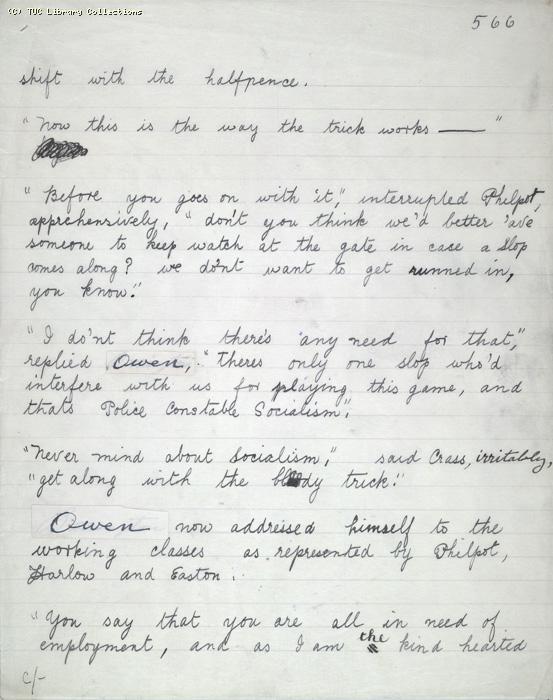 (C) TUC Library Collections
566
shift with the halfpence.
"Now this is the way the trick works —"
"Before you goes on with it," interrupted Philpot,
apprehensively, "don't you think we'd better 'ave
someone to keep watch at the gate in case a Slop
comes along? we do'nt want to get runned in,
you know."
"I do'nt think there's any need for that,"
replied Owen, "Theres only one slop who'd
interfere with us for playing this game, and
thats Police Constable Socialism".
"Never mind about Socialism," said Crass, irritably,
"get along with the bloody trick."
Owen now addressed himself to the
working classes as represented by Philpot,
Harlow and Easton.
"You say that you are all in need of
employment, and as I am the kind hearted
c/-